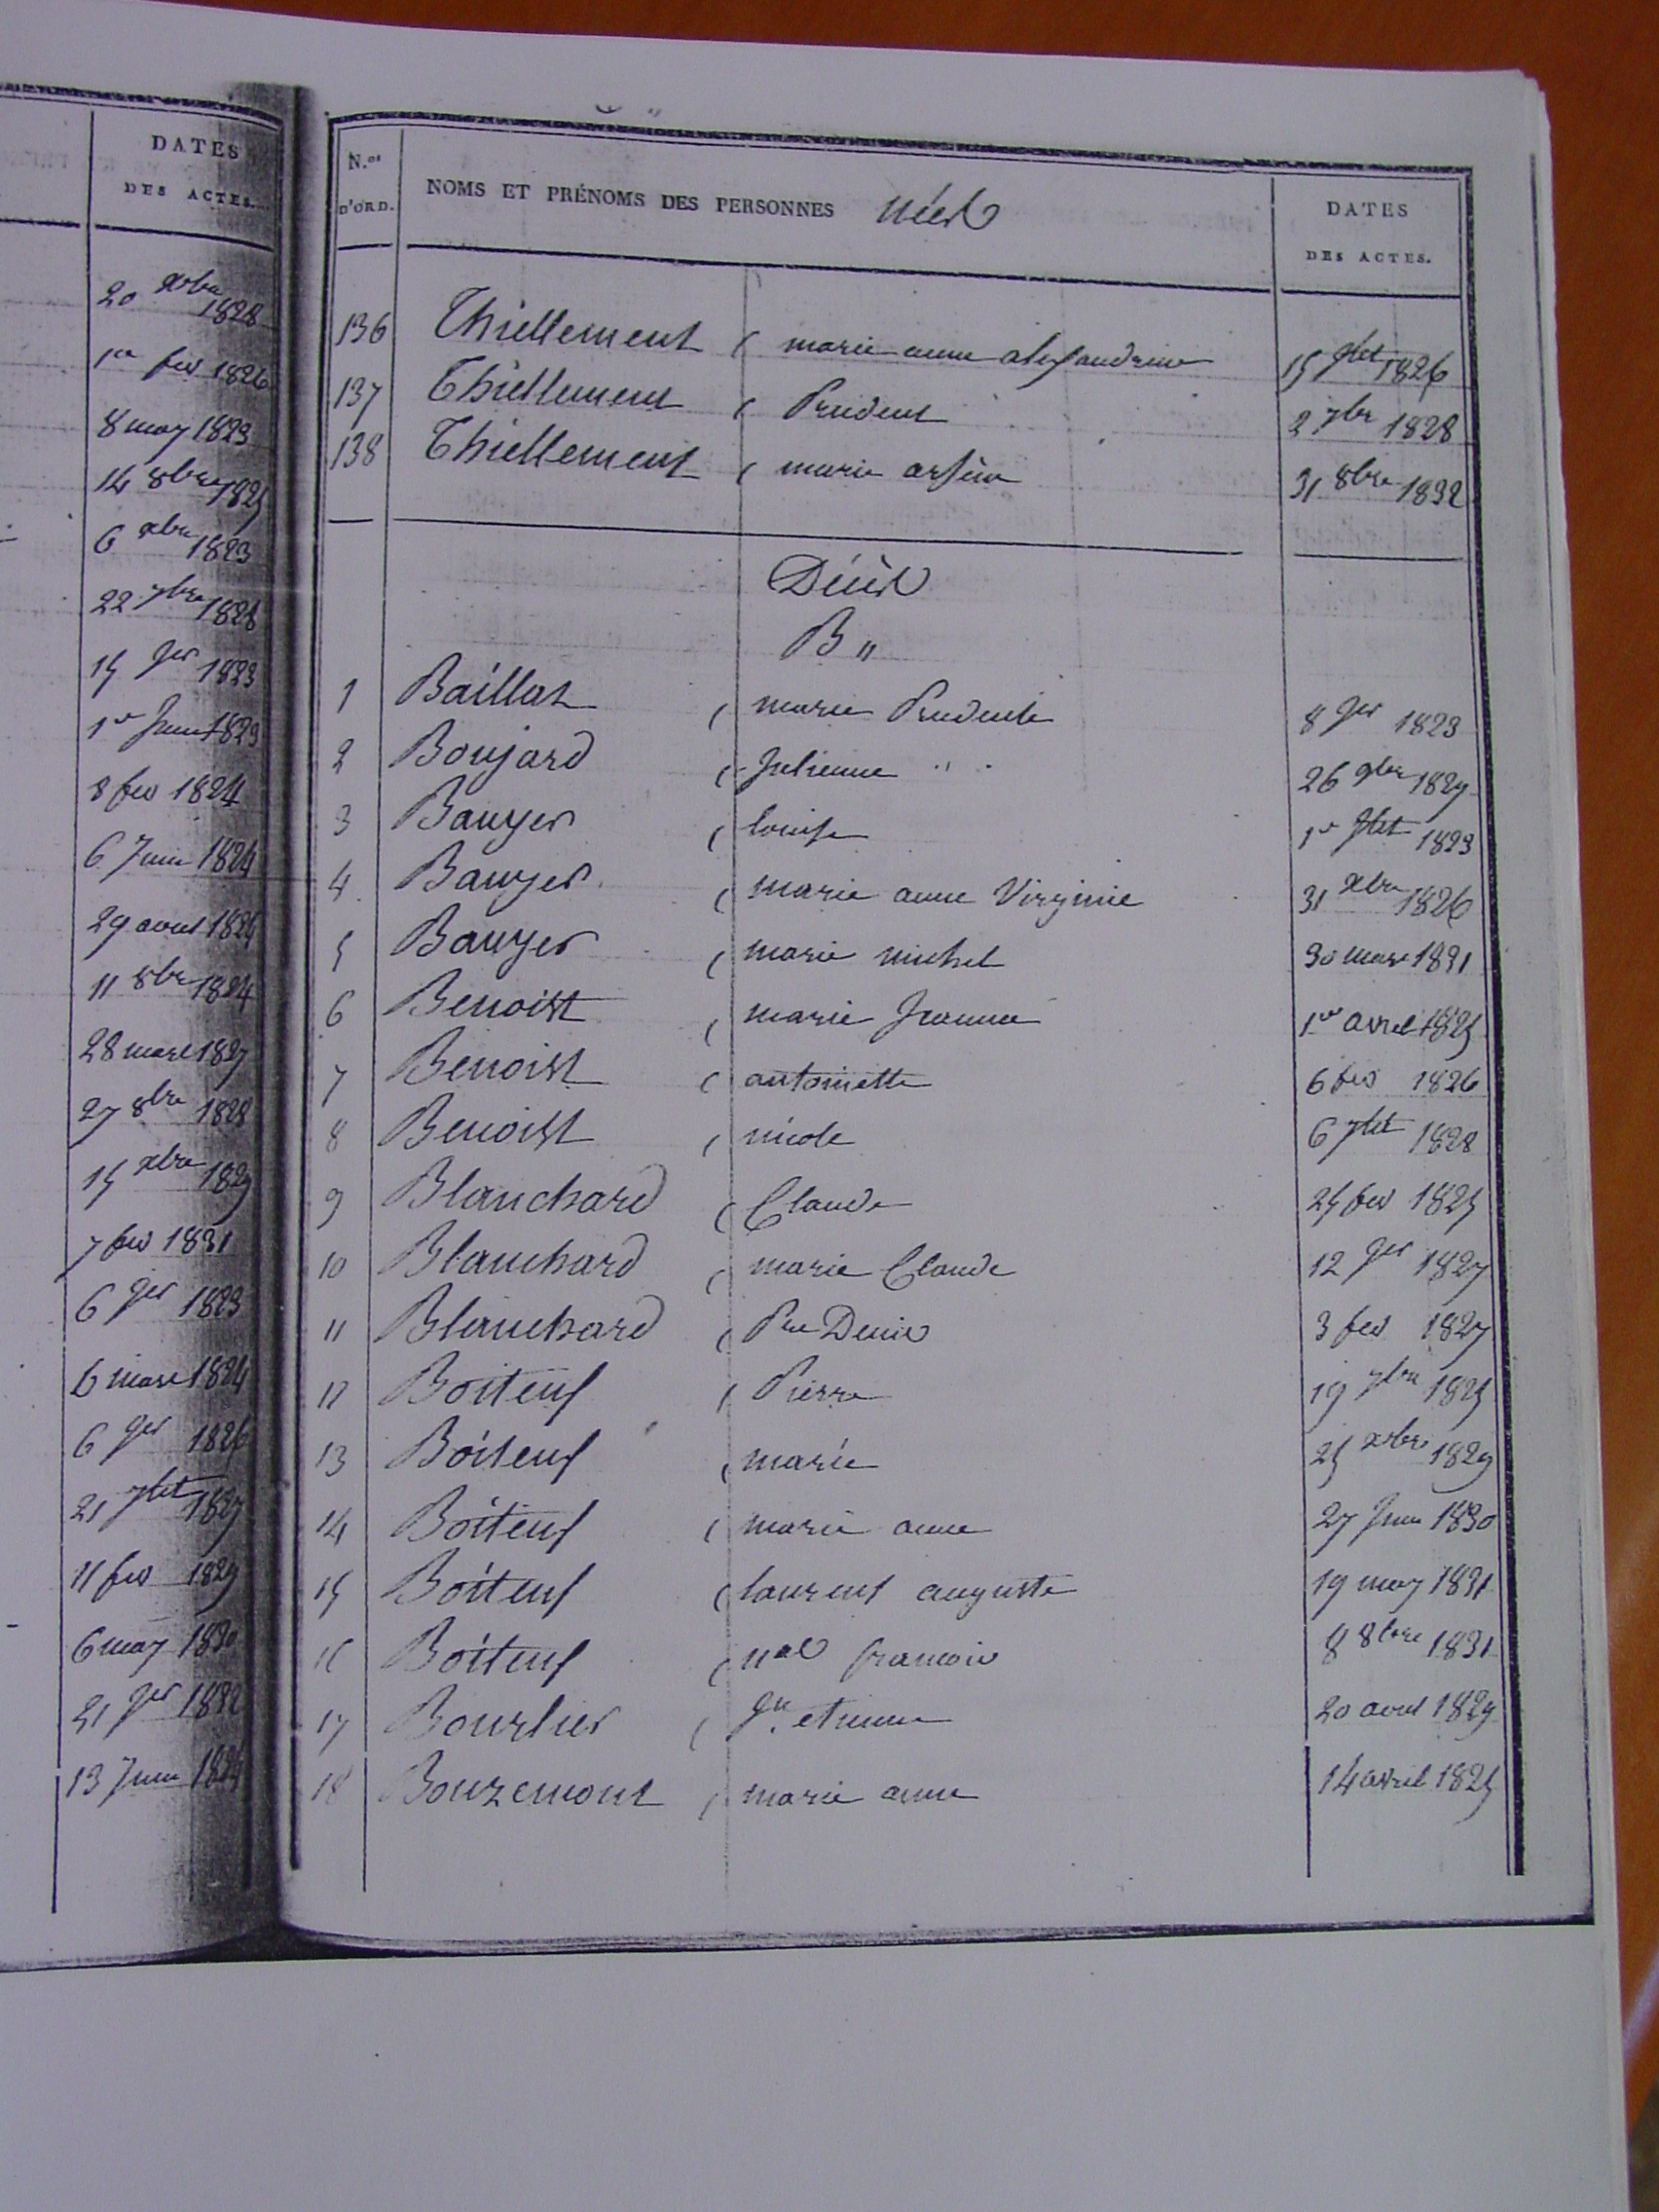 DATES
DES ACTES.
20 xbre 1828
1er fev 1826
8 may 1823
14 8bre 1825
6 xbre 1823
22 7bre 1828
15 Jer 1823
1er Juin 1823
8 fev 1824
6 Juin 1824
29 aout 1824
11 8bre 1824
28 mars 1827
27 8bre 1828
15 xbre 1829
7 fev 1831
6 Jer 1823
6 mars 1824
6 Jer 1826
21 Jlet 1827
11 fev 1829
6 may 1830
21 Jer 1832
13 Juin 1824
N.os D'ORD. NOMS ET PRÉNOMS DES PERSONNES Nées DATES DES ACTES.
136 Thiellement ( marie anne alexandrine 15 Jlet 1826
137 Thiellement ( Prudent 2 7bre 1828
138 Thiellement ( marie arsène 31 8bre 1832
Décès
B "
1 Baillot ( marie Prudente 8 Jer 1823
2 Boujard ( Julienne " 26 9bre 1829
3 Bauyer ( louise 1er Jlet 1823
4 Bauyer ( marie anne Virginie 31 xbre 1826
5 Bauyer ( marie michel 30 mars 1831
6 Benoist ( marie Jeanne 1er avril 1825
7 Benoist ( antoinette 6 fev 1826
8 Benoist ( nicole 6 Jlet 1828
9 Blanchard ( Claude 25 fev 1825
10 Blanchard ( marie Claude 12 Jer 1827
11 Blanchard ( Pre Denis 3 fev 1827
12 Boiteux ( Pierre 19 7bre 1825
13 Boiteux ( marie 25 xbre 1829
14 Boiteux ( marie anne 27 Juin 1830
15 Boiteux ( laurent auguste 19 may 1831
16 Boiteux ( nas francois 8 8bre 1831
17 Bourlier ( Jn etienne 20 aout 1829
18 Bouzemont ( marie anne 14 avril 1825